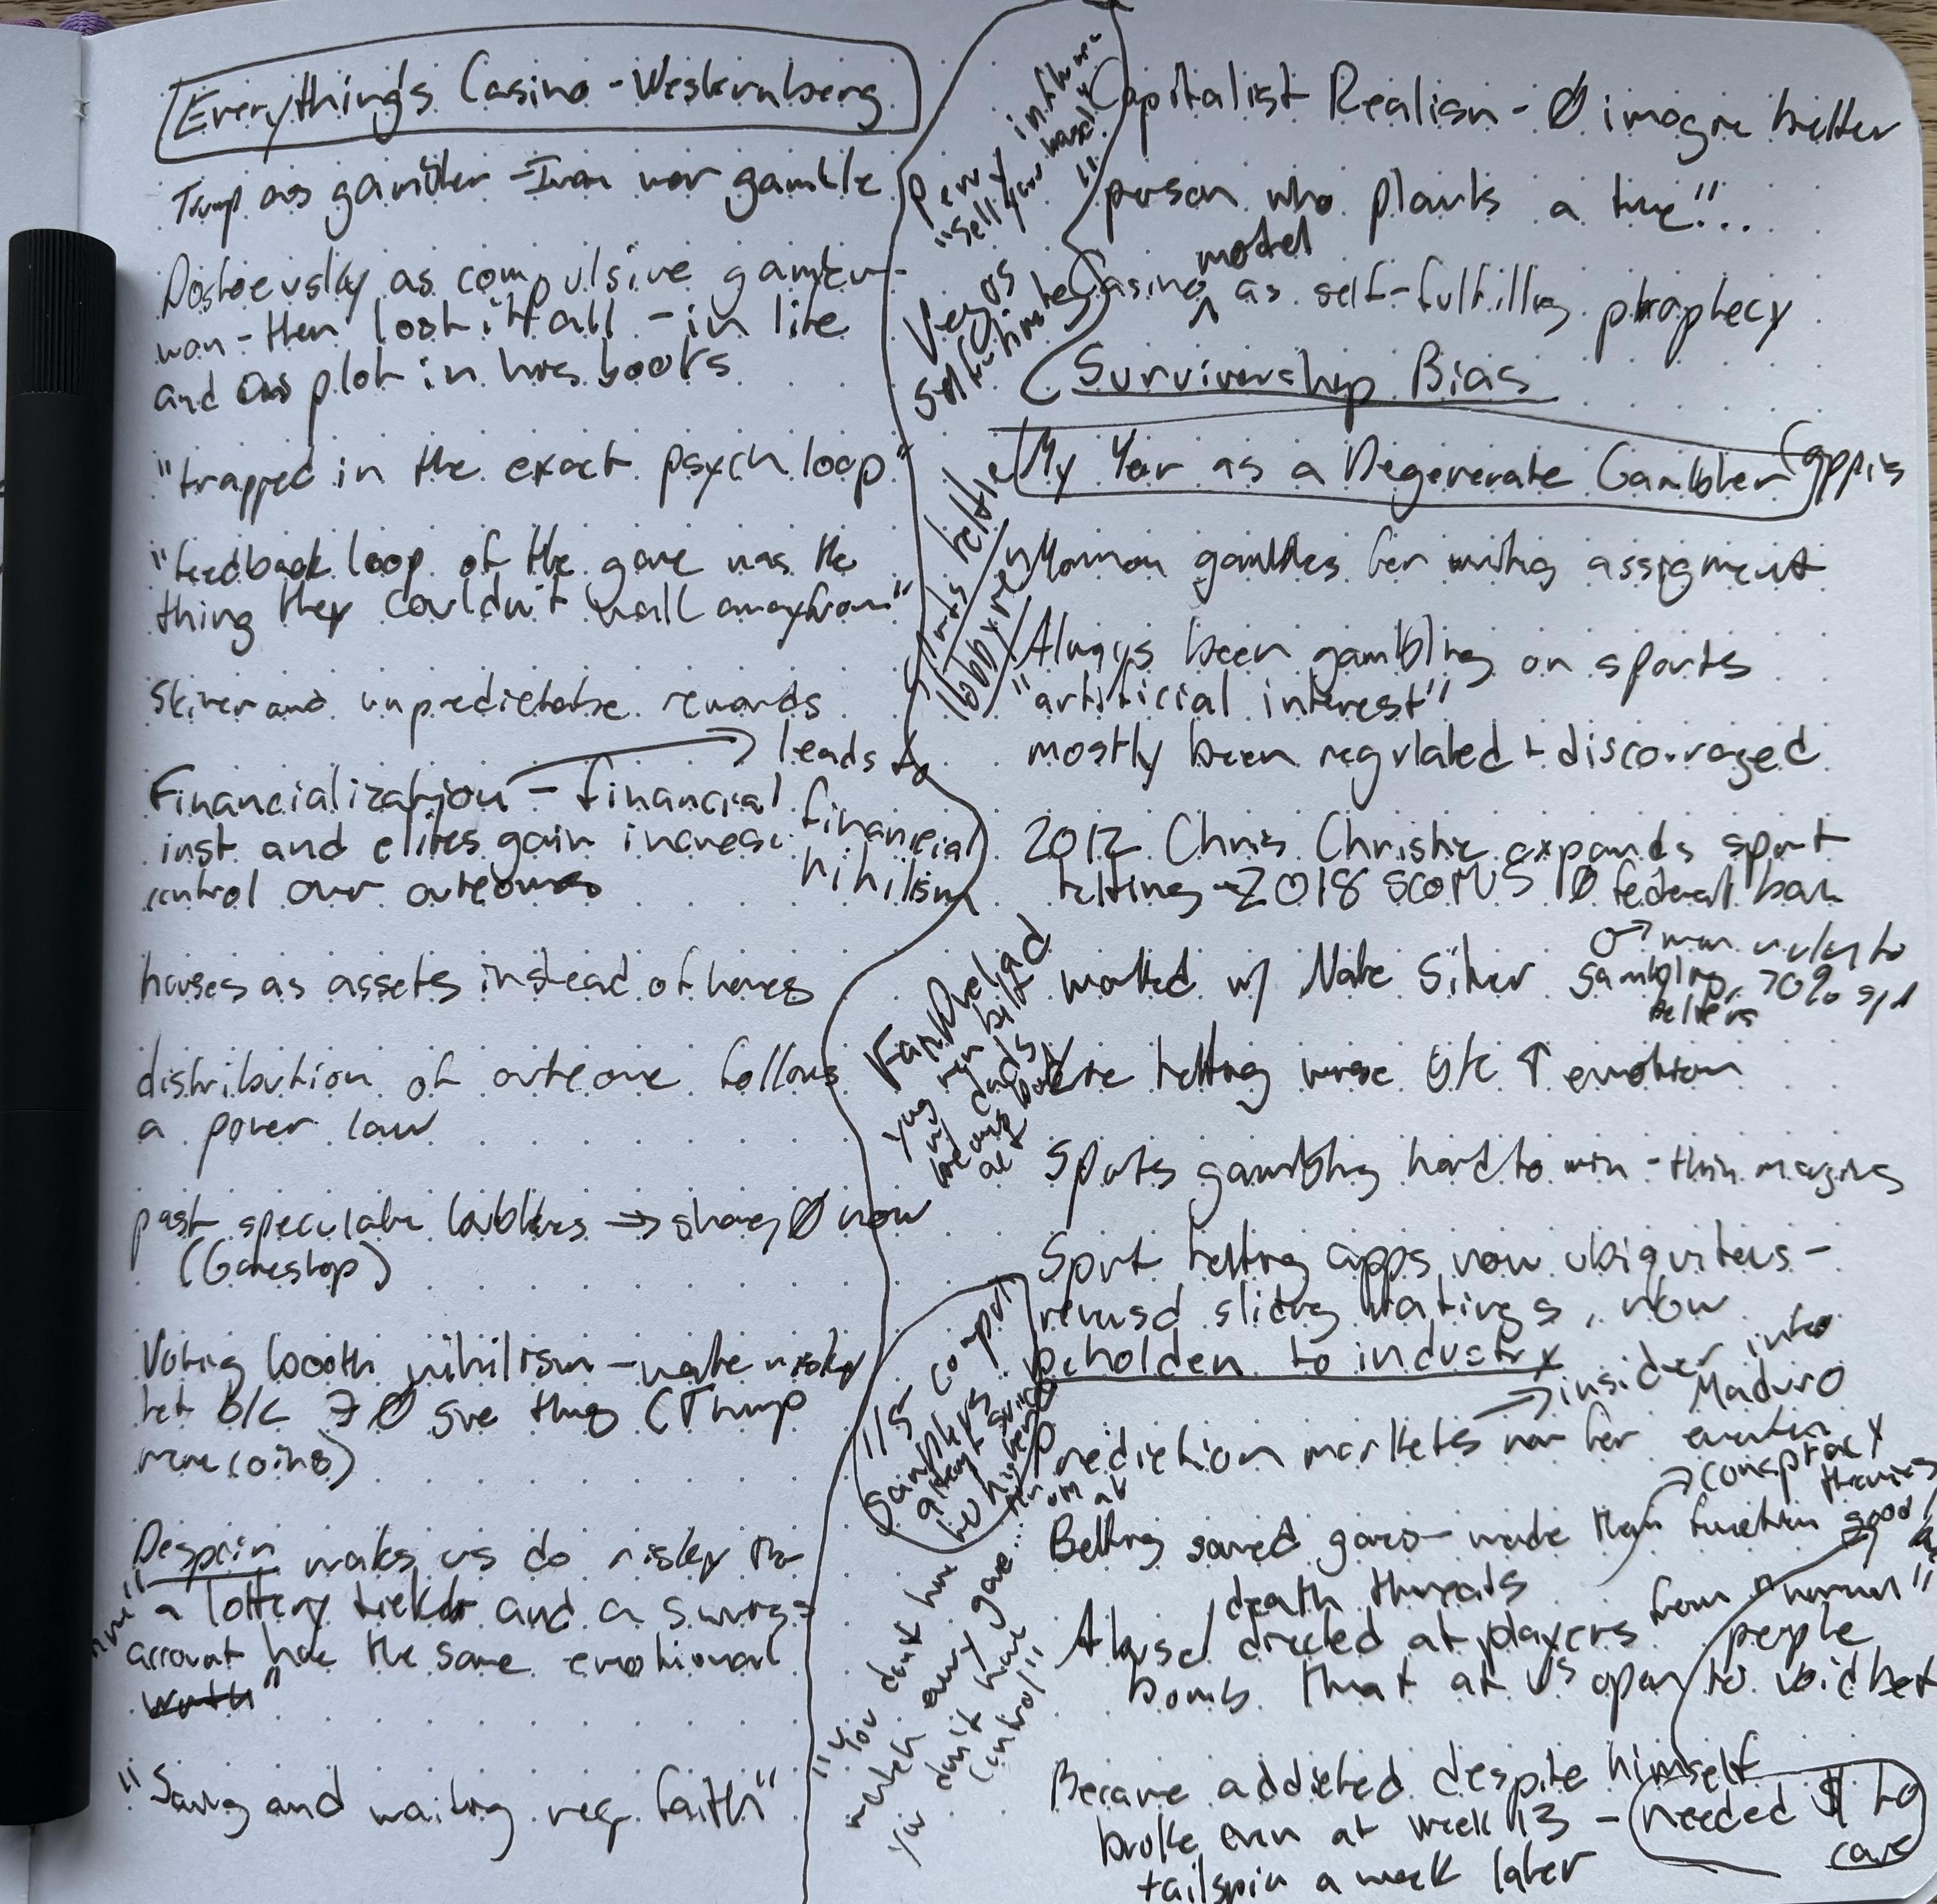 Everything's Casino - Westenberg
Trump as gambler - Iran war gamble
Dostoevsky as compulsive gambler -
won - then lost it all - in life
and as plot in his books
"trapped in the exact psych loop"
"feedback loop of the game was the
thing they couldn't walk away from"
Skinner and unpredictable rewards
Financialization - financial
inst and elites gain increase
control over outcomes
leads to
financial
nihilism
houses as assets instead of homes
distribution of outcome follows
a power law
past speculative bubbles → shares Ø now
(Gamestop)
Voting booth nihilism - make risky
bet b/c Ø sve thing (Trump
meme coins)
Despair makes us do risky
"a lottery ticket and a savings
account have the same emotional
worth"
"Saving and waiting req. faith"
Capitalist Realism - Ø imagine better
person who plants a tree"..
Casino model as self-fulfilling prophecy
(Survivorship Bias
My Year as a Degenerate Gambler Coppins
Mormon gambles for writing assignment
Always been gambling on sports
"artificial interest"
mostly been regulated + discouraged
2012 Chris Christie expands sport
betting → 2018 SCOTUS Ø federal ban
worked w/ Nate Silver
♂ → more vuln to
gambling, 70% spt
betters
live betting worse b/c ↑ emotion
Sports gambling hard to win - thin margins
Sport betting apps now ubiquitous -
reversed sliding ratings, now
beholden to industry
Prediction markets now for
→ insider info
Maduro
Betting saved games - made them function
→ conspiracy
theories
good/
Abuse/death threats directed at players from "normal"
people
bomb threat at US open to void bet
Became addicted despite himself
broke even at week 13 - needed $ to
care
tailspin a week later
Vegas
Sphere
sports betting
lobbying
Fan Duel ad
1/5 compul
gamblers
attempt suicide
"You don't have
watch every game...
you don't have
control"